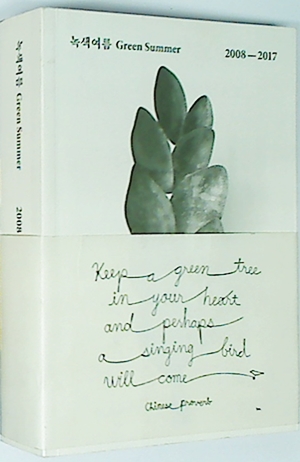 녹색여름 Green Summer 2008—2017
녹색여름 Green Summer 2008
Keep a green tree
in your heart
and perhaps
a singing bird
will come
chinese proverb